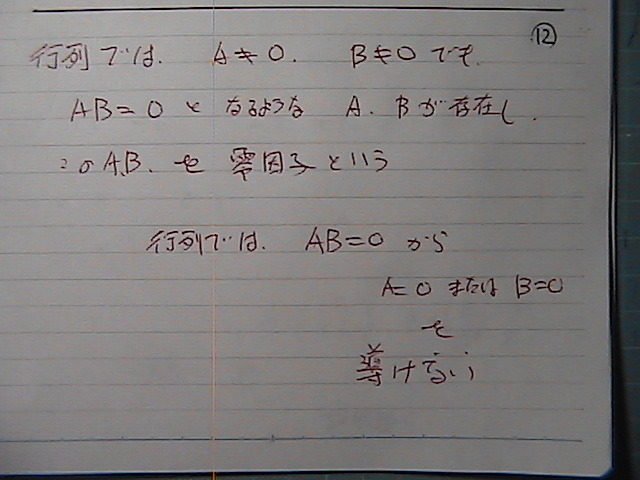 ⑫
行列では. A≠0. B≠0でも.
AB=0となるような A. Bが存在し.
このA.B. を 零因子という
行列では. AB=0 から
A=0 または B=0
を
導けない